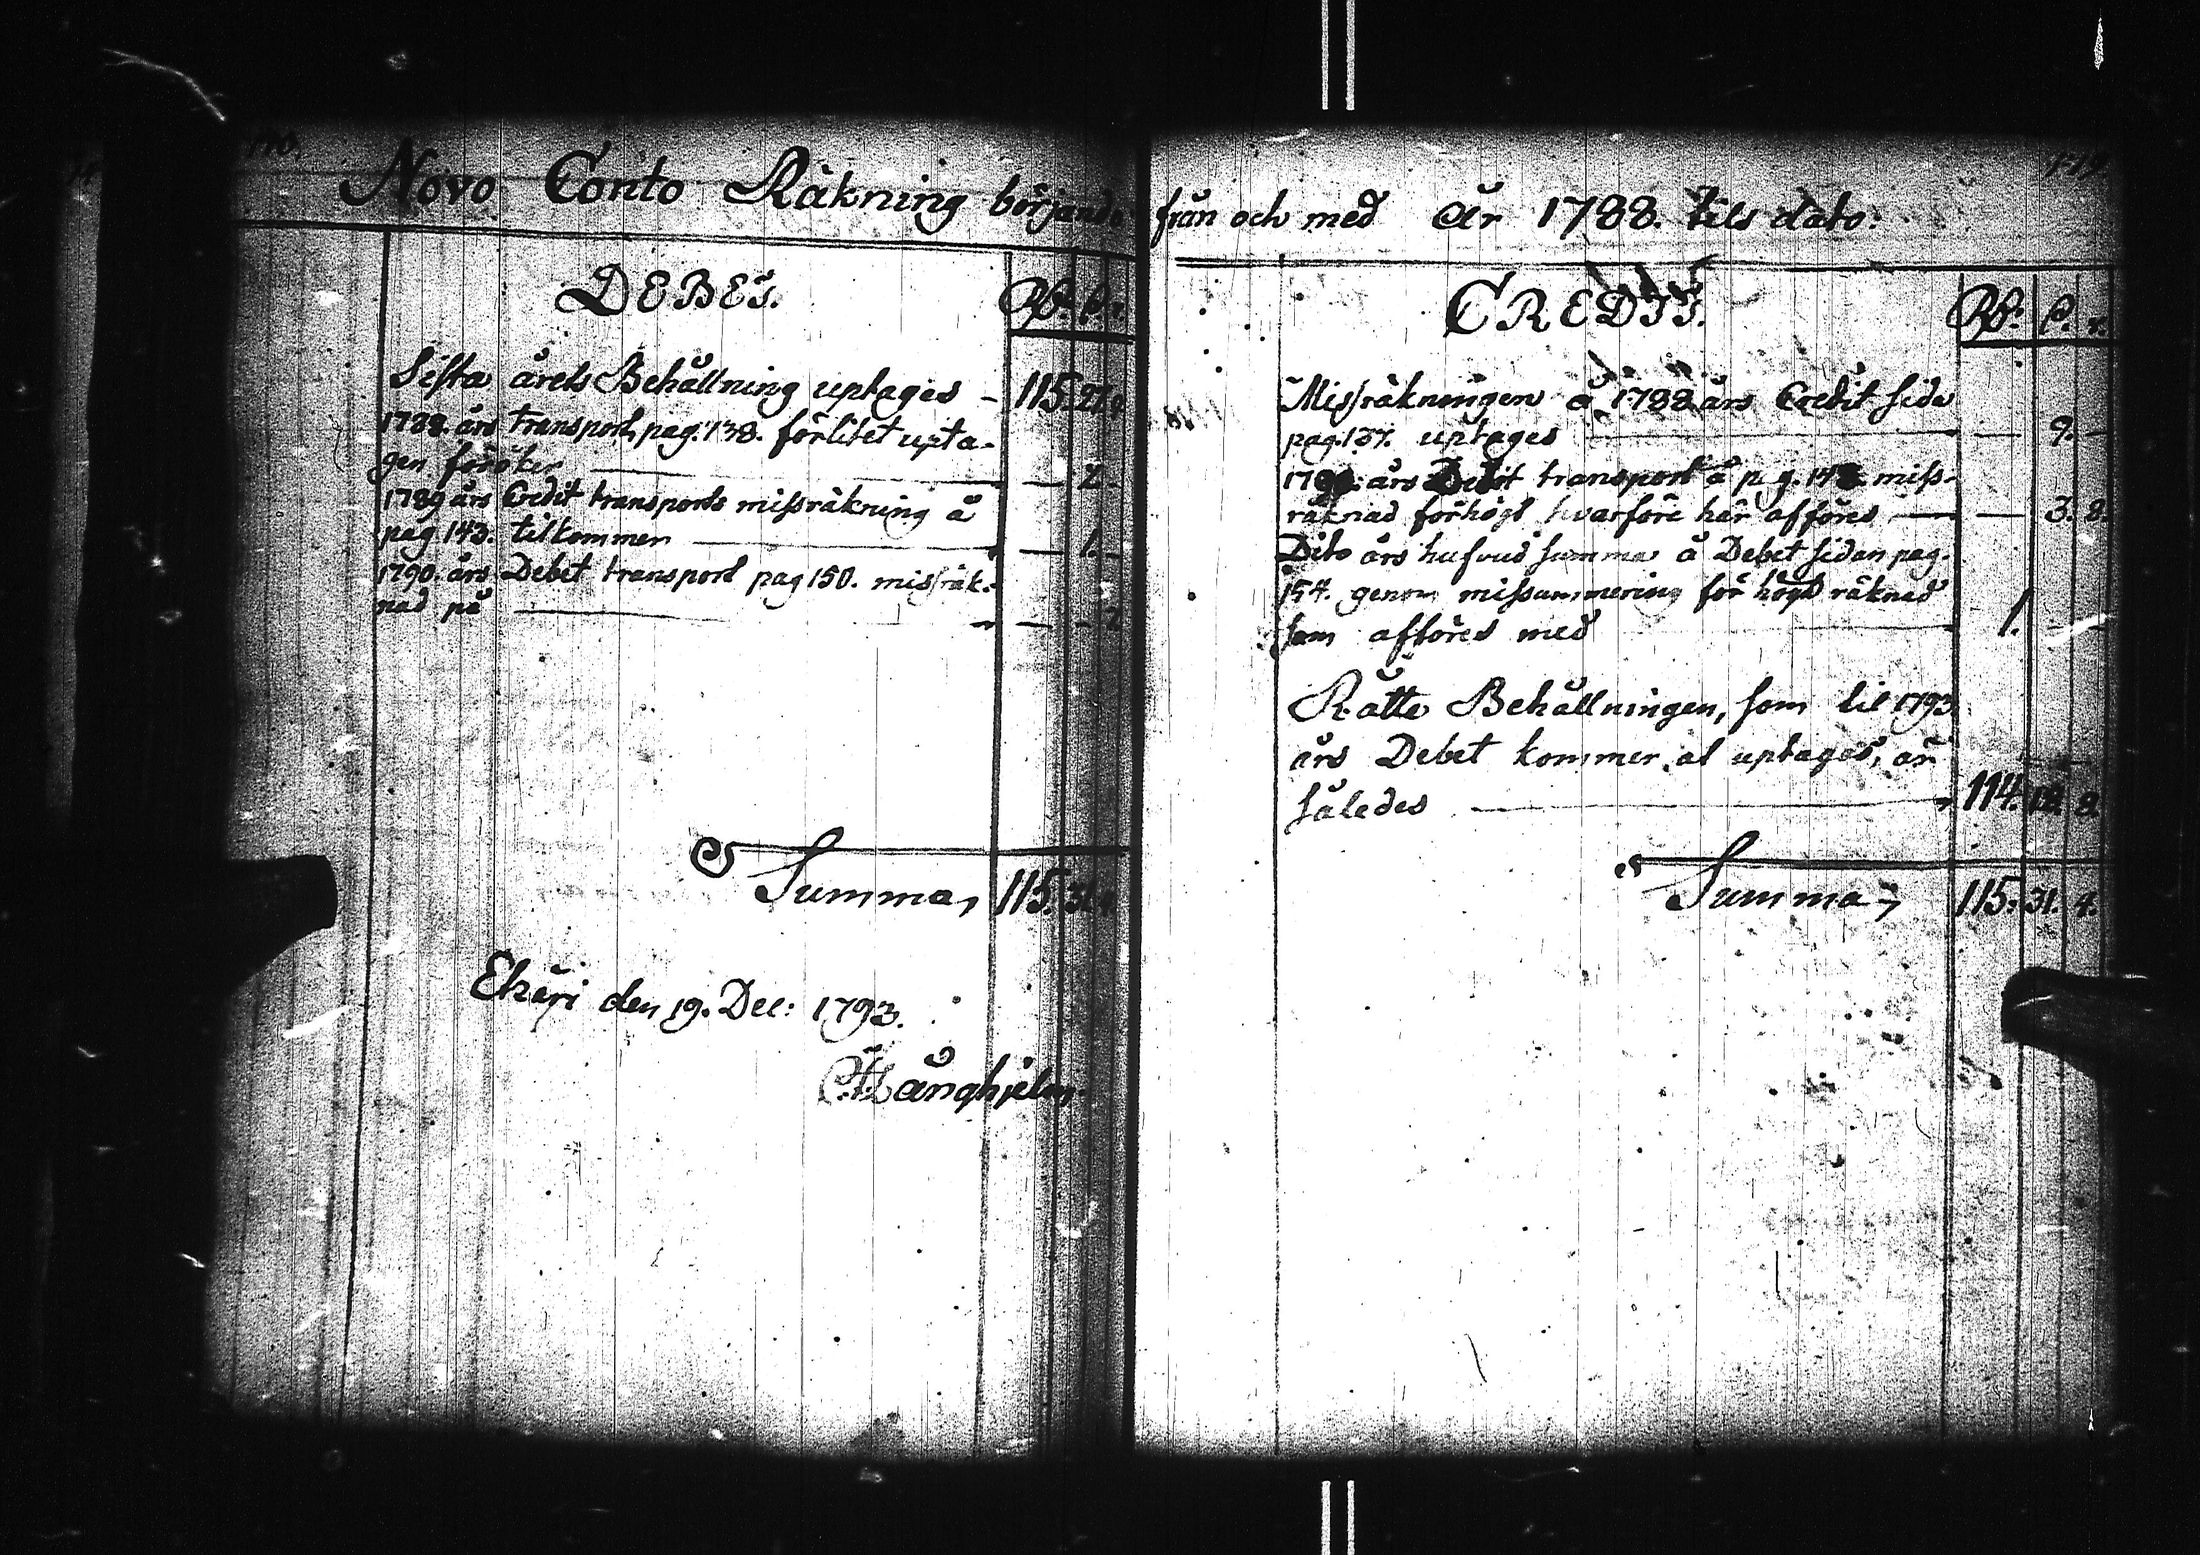 170.
Novo Conto Räkning börjande
DEBES.
Rd. s. r.
Sista årets Behållning uptages - 115. 27.
1788. års transport, pag: 138. förlitet upta-
gen förökes - 2. -
1789 års Credit transports missräkning å
pag 143. tilkommer - 1. -
1790. års Debet transport pag 150. missräk-
nad på - - 2
Summa, 115. 31.
Ekeri den 19. Dec: 1793.
Långhjelm
från och med År 1788. tils dato:
CREDIT.
Rd. s. r.
Missräkningen å 1788 års Credit sida
pag. 137. uptages - 9. -
års Debet transport å missräknad
räknad förhögt hvarföre här afföres - 3. 8.
Dito års hufvud summa å Debet sidan pag.
154. genom missummering för högt räknad
som afföres med 1. - -
Rätta Behållningen, som til 1793
års Debet kommer at uptages, är
således 114. 18. 8.
Summa 115. 31. 4.